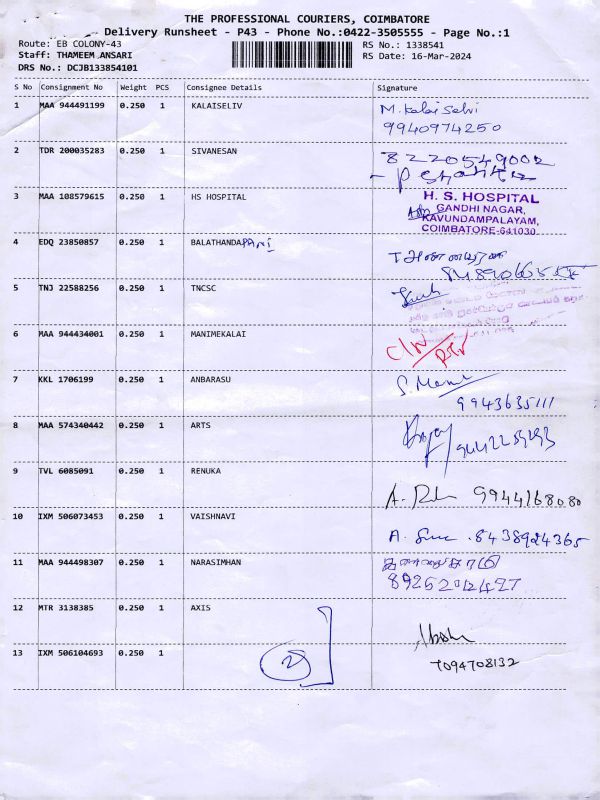 THE PROFESSIONAL COURIERS, COIMBATORE
Delivery Runsheet - P43 - Phone No.:0422-3505555 - Page No.:1
Route: EB COLONY-43 RS No.: 1338541
Staff: THAMEEM ANSARI RS Date: 16-Mar-2024
DRS No.: DCJB133854101
S No Consignment No Weight PCS Consignee Details Signature
1 MAA 944491199 0.250 1 KALAISELIV M.Kalai Selvi
9940974250
2 TDR 200035283 0.250 1 SIVANESAN 8220549002
3 MAA 108579615 0.250 1 HS HOSPITAL H. S. HOSPITAL
GANDHI NAGAR,
KAVUNDAMPALAYAM,
COIMBATORE-641030
4 EDQ 23850857 0.250 1 BALATHANDAPANI
5 TNJ 22588256 0.250 1 TNCSC
6 MAA 944434001 0.250 1 MANIMEKALAI
7 KKL 1706199 0.250 1 ANBARASU
9943635111
8 MAA 574340442 0.250 1 ARTS
9 TVL 6085091 0.250 1 RENUKA 9944168080
10 IXM 506073453 0.250 1 VAISHNAVI 8438924365
11 MAA 944498307 0.250 1 NARASIMHAN
12 MTR 3138385 0.250 1 AXIS
13 IXM 506104693 0.250 1 2 7094708132